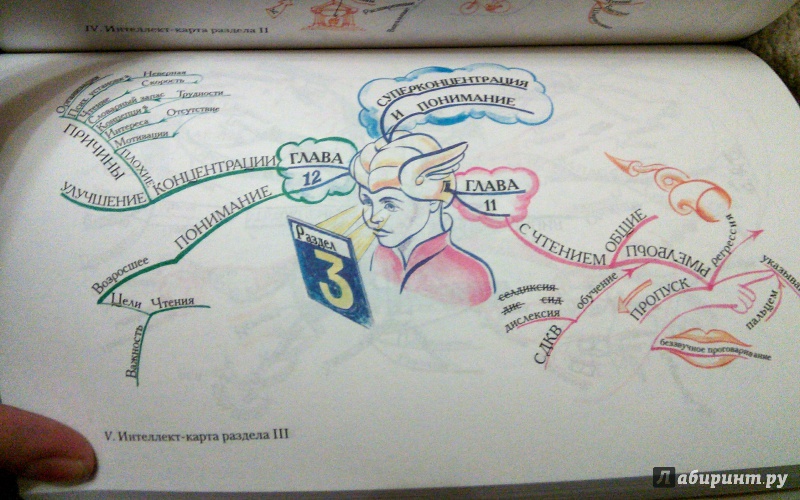 IV. Интеллект-карта раздела II
СУПЕРКОНЦЕНТРАЦИЯ
И ПОНИМАНИЕ
ГЛАВА
12
КОНЦЕНТРАЦИИ
УЛУЧШЕНИЕ
ПРИЧИНЫ
ПЛОХИЕ
Неверная
Скорость
Чтение
Словарный запас
Трудности
Концепции
Интереса
Мотивации
Отсутствие
ПОНИМАНИЕ
Возросшее
Цели Чтения
Важность
Раздел
3
ГЛАВА
11
С ЧТЕНИЕМ
ОБЩИЕ
ПРОБЛЕМЫ
регрессия
указыва
пальцем
ПРОПУСК
беззвучное проговаривание
обучение
СДКВ
селдиксия
дис сид
дислексия
V. Интеллект-карта раздела III
Лабиринт.ру